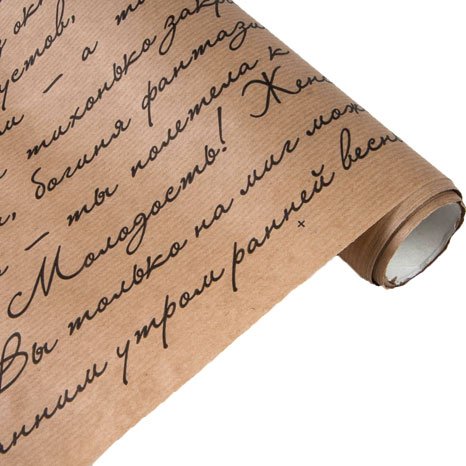 а т
тихонько закр
богиня фантази
– ты полетела к
Молодость! Жен
Вы только на миг мож
утром ранней весн